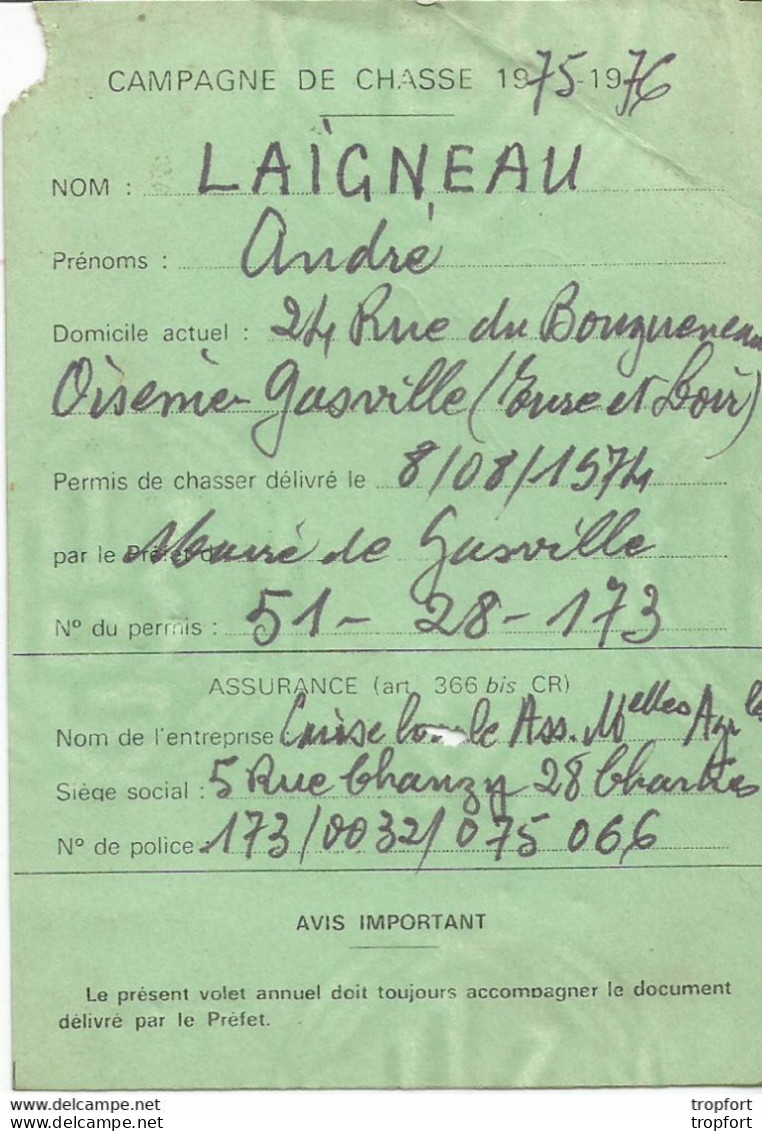 CAMPAGNE DE CHASSE 1975-1976
NOM : LAIGNEAU
Prénoms : André
Domicile actuel : 24 Rue du
Oisème Gasville (Eure et Loir)
Permis de chasser délivré le 8/08/1974
par le Maire de Gasville
N° du permis : 51 - 28 - 173
ASSURANCE (art. 366 bis CR)
Nom de l'entreprise : Caisse Ass. Melles Agrles
Siège social : 5 Rue Chanzy 28 Chartres
N° de police 173/0032/075 066
AVIS IMPORTANT
Le présent volet annuel doit toujours accompagner le document
délivré par le Préfet.
www.delcampe.net tropfort
www.delcampe.net tropfort